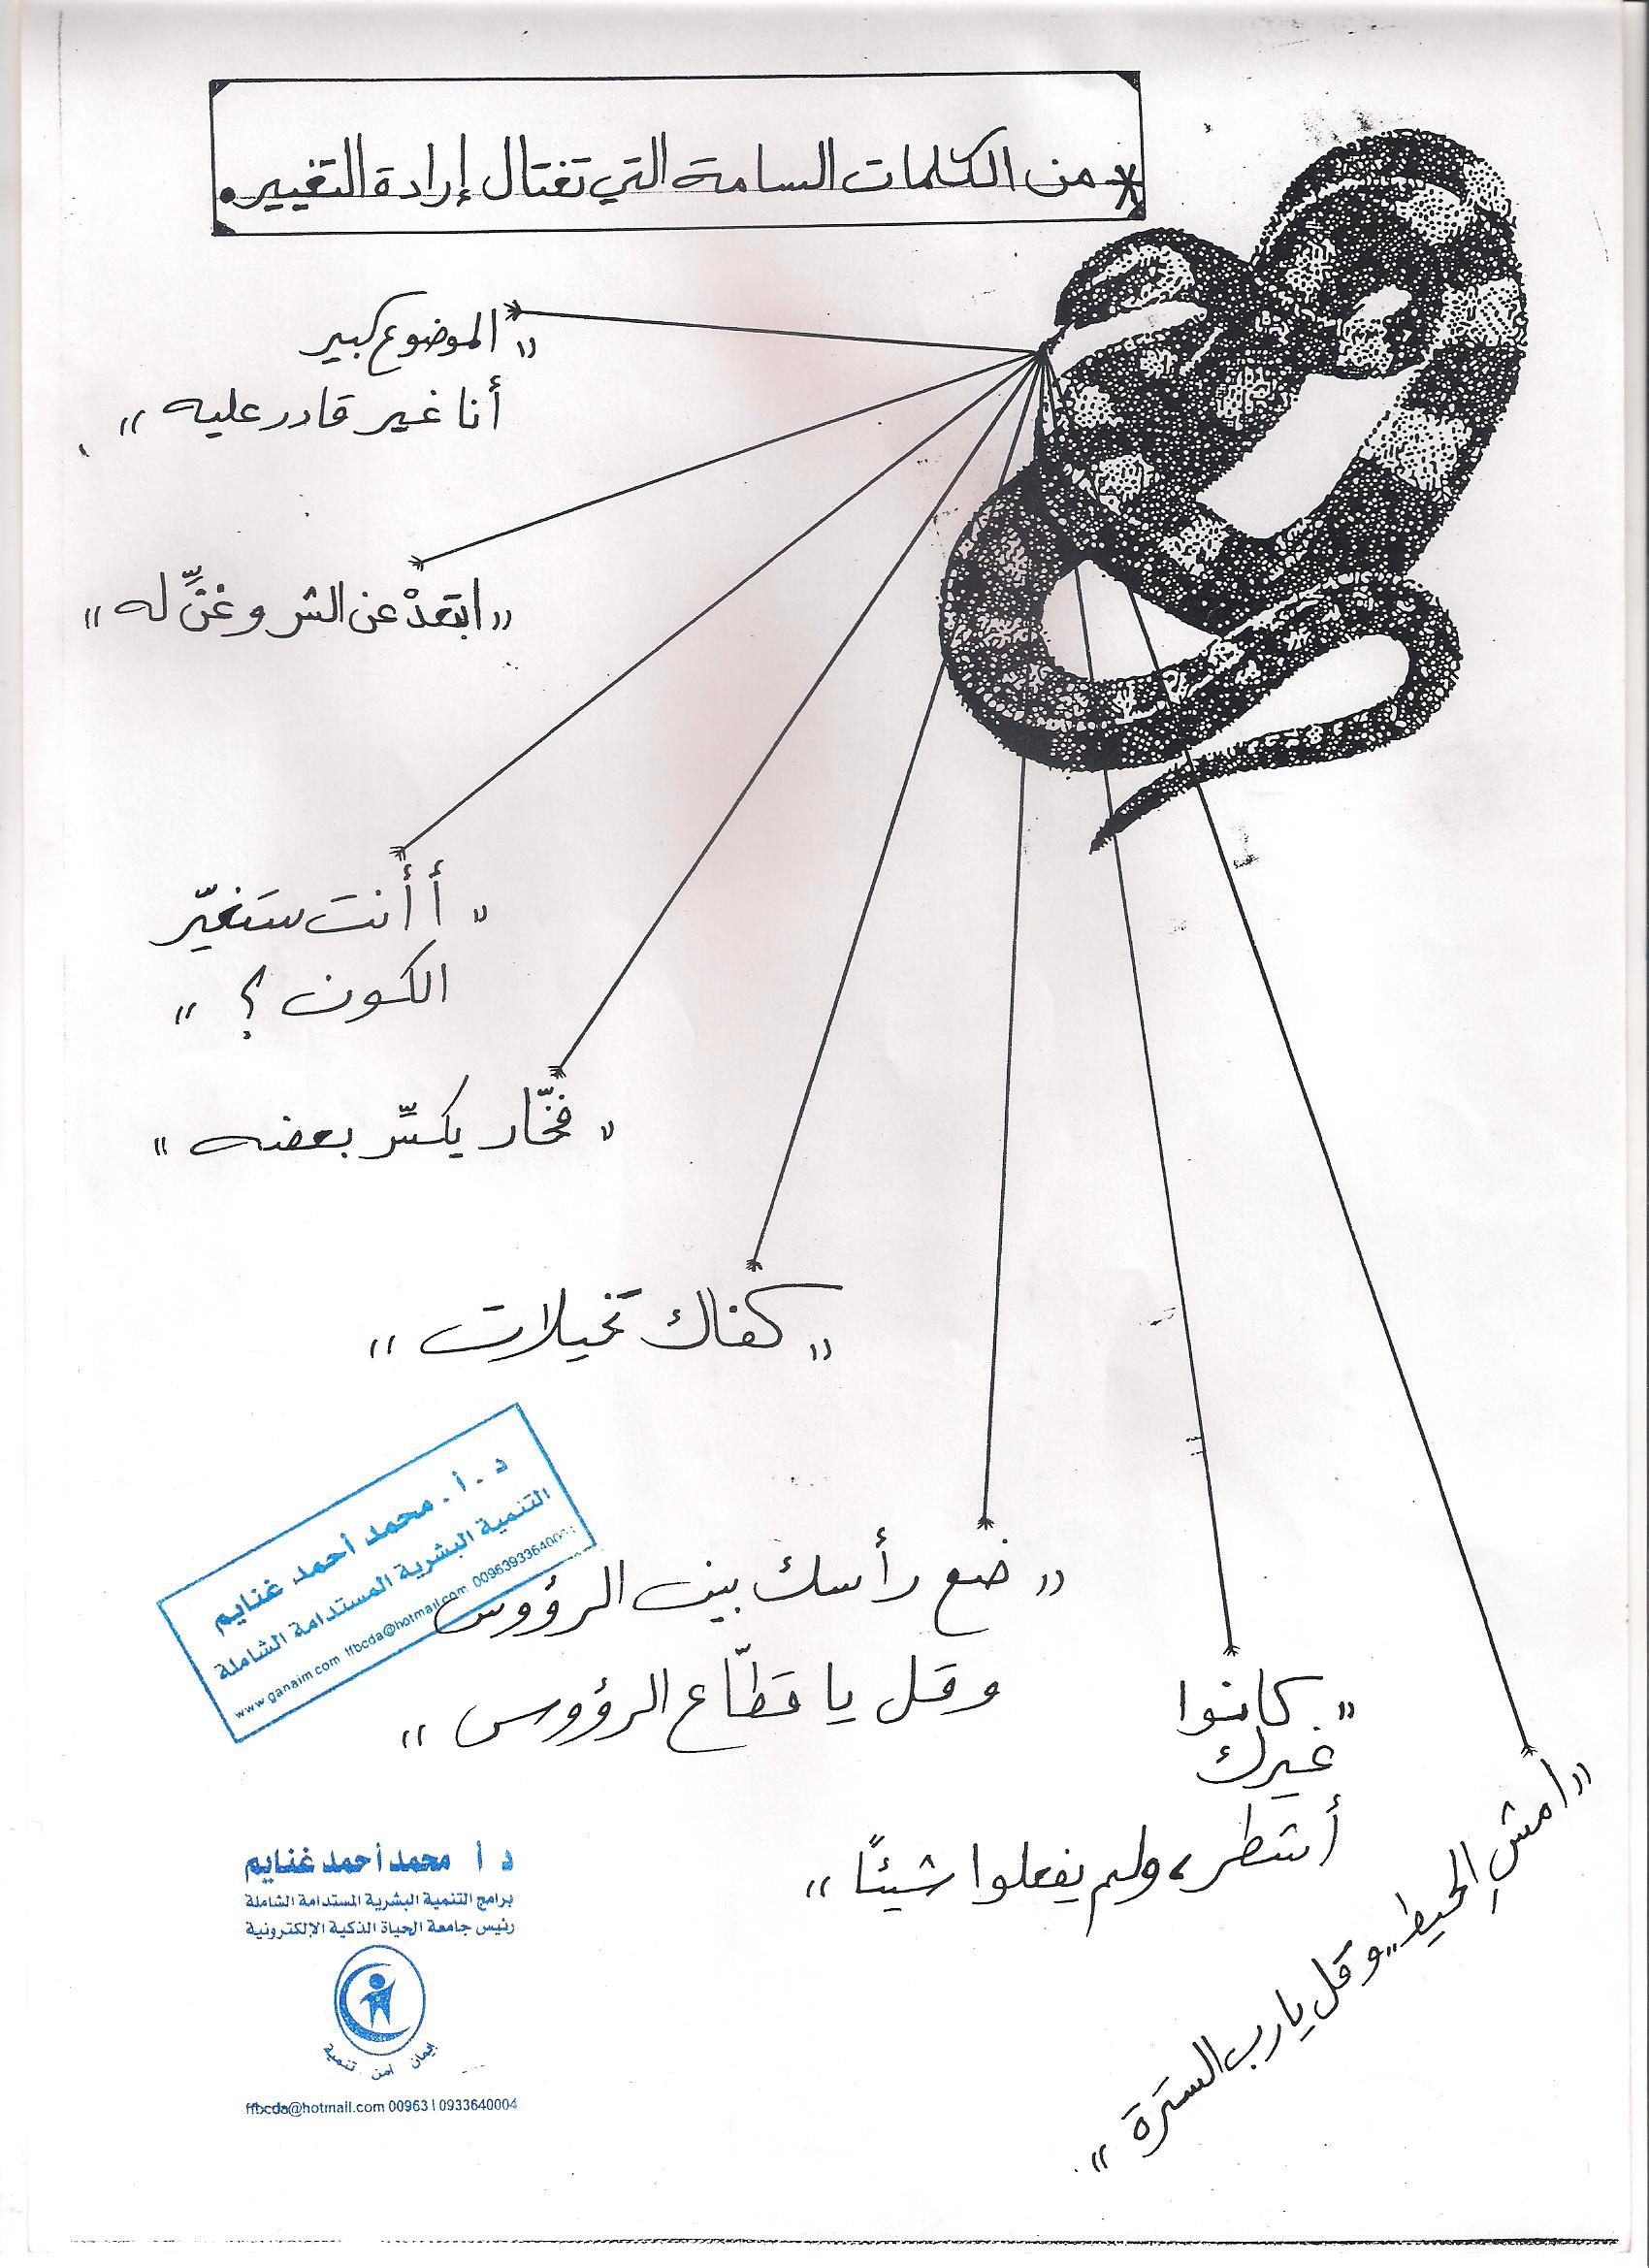 * من الكلمات السامة التي تغتال إرادة التغيير.
"الموضوع كبير
أنا غير قادر عليه"
"ابتعدْ عن الشر وغنِّ له"
"أأنت ستغيّر
الكون؟"
"فخّار يكسِّر بعضه"
"كفاك تخيلات"
"ضع رأسك بين الرؤوس
وقل يا قطّاع الرؤوس"
"كانوا
غيرك
أشطر، ولم يفعلوا شيئًا"
"امشِ الحيط.. وقل يارب السترة"
د.أ. محمد أحمد غنايم
التنمية البشرية المستدامة الشاملة
www.ganaim.com ffbcda@hotmail.com
د أ محمد أحمد غنايم
برامج التنمية البشرية المستدامة الشاملة
رئيس جامعة الحياة الذكية الإلكترونية
إيمان أمن تنمية
ffbcda@hotmail.com 00963 | 0933640004